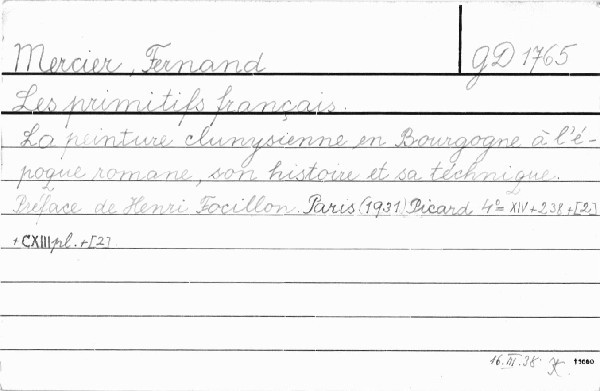 Mercier, Fernand GD 1765
Les primitifs français.
La peinture clunysienne en Bourgogne à l'é-
poque romane, son histoire et sa téchnique.
Préface de Henri Focillon. Paris (1931) Picard 4º XIV + 238 + [2]
+ CXIII pl. + [2]
16. III. 38. 11660